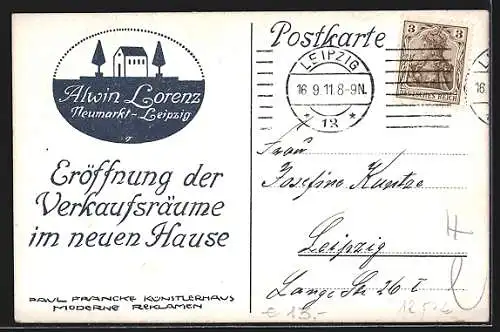 Alwin Lorenz
Neumarkt-Leipzig
Eröffnung der
Verkaufsräume
im neuen Hause
PAUL FRANCKE KÜNSTLERHAUS
MODERNE REKLAMEN
Postkarte
LEIPZIG
16 9.11.8-9N.
* 13 *
3 3
DEUTSCHES REICH
LEIPZIG
16.
Frau
Josefine Kuntze
Leipzig
Lange Str 26 I
€ 13.-